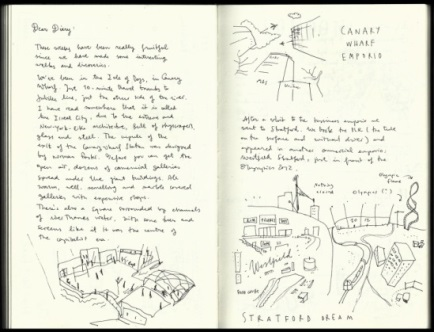 Dear Diary:
These weeks have been really fruitful
since we have made some interesting
walks and discoveries.
We've been in the Isle of Dogs, in Canary
Wharf. Just 10 minute travel thanks to
Jubilee line, just the other side of the river.
I have read somewhere that it is called
the and
New-York-like architecture, full of skyscrapers,
glass and steel. The
exit of the Canary Wharf Station was designed
by Norman Foster. Before you can get the
open air, dozens of commercial galleries
spread under the giant buildings. We
warm, well smelling and marble covered
galleries with expensive shops.
There's also a square surrounded by channels
of Thames water, with some bars and
screens like it was the centre of
the capitalist era.
CANARY
WHARF
EMPORIO
After a visit to the business emporio we
went to Stratford. We took the DLR (the Tube
on the surface and without driver) and
appeared in another commercial emporio:
Westfield Stratford, just in front of the
Olympics 2012.
Olympic
Westfield
STRATFORD DREAM